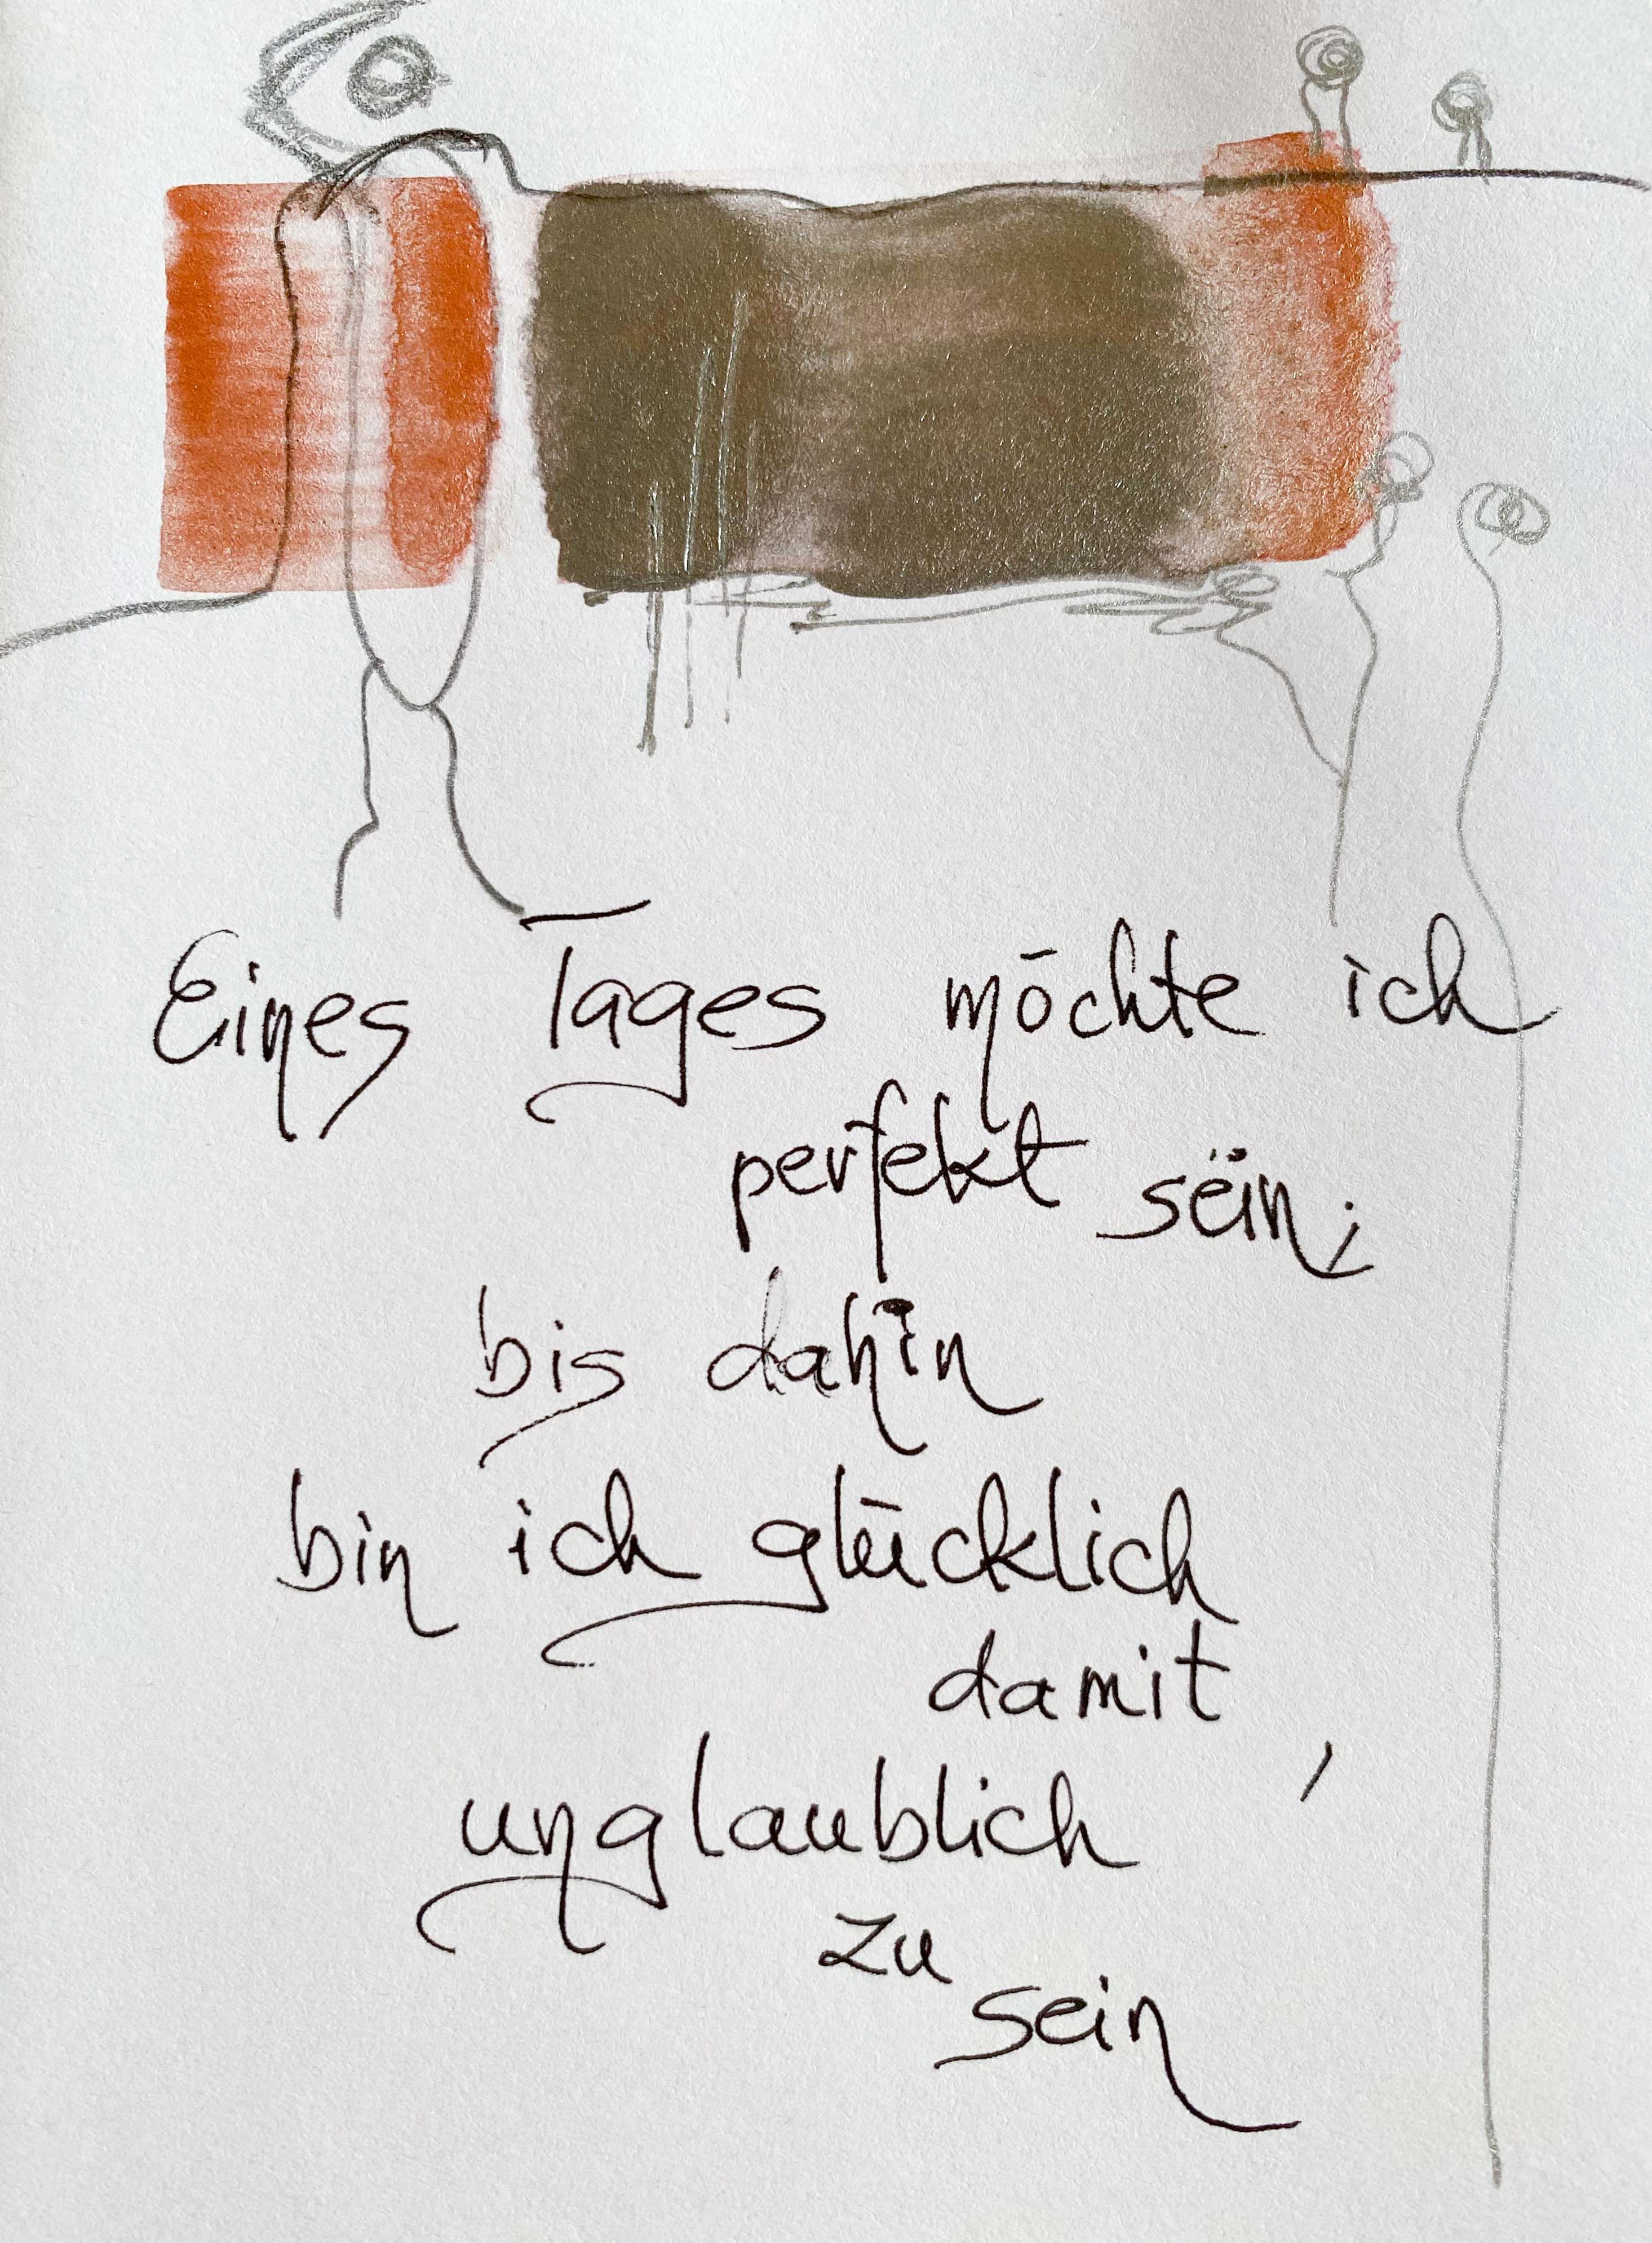 Eines Tages möchte ich
perfekt sein;
bis dahin
bin ich glücklich
damit,
unglaublich
zu
sein